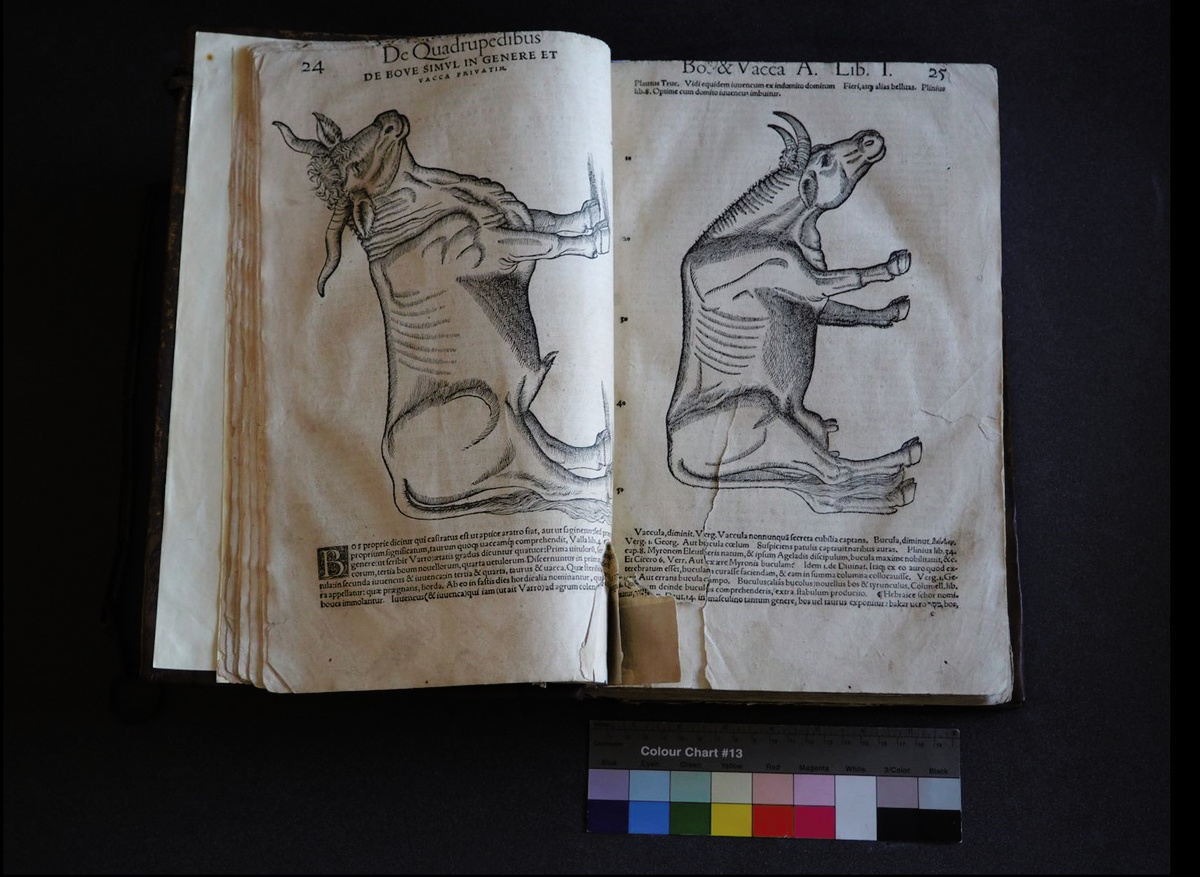 24
De Quadrupedibus
DE BOVE SIMVL IN GENERE ET
VACCA PRIVATIM.
BOS proprie dicitur qui castratus est ut aptior aratro fiat, aut ut saginetur: sed
proprium significatum, taurum quoque uaccamque comprehendit, Valla lib. 4.
genere ut scribit Varro: ætatis gradus dicuntur quatuor: Prima uitulorum,
corum, tertia boum nouellorum, quarta uetulorum. Discernuntur in prima
in secunda iuuencus & iuuenca: in tertia & quarta, taurus & uacca. Quæ
ra appellatur: quæ prægnans, horda. Ab eo in fastis dies hordicalia nominantur,
boues immolantur. Iuuencus (& iuuenca) qui iam (ut ait Varro) ad agrum colen
Bo. & Vacca A. Lib. I. 25
Plautus Truc. Vidi equidem iuuencum ex indomito domitum Fieri, atque alias belluas. Plinius
lib. 8. Optime cum domito iuuencus imbuitur.
10
20
30
40
50
Vaccula, diminit. Verg. Vaccula nonnunquam secreta cubilia captans. Bucula, diminut.
Verg. 1. Georg. Aut bucula cœlum Suspiciens patulis captauit naribus auras. Plinius lib. 34.
cap. 8. Myronem Eleutheris natum, & ipsum Ageladis discipulum, bucula maxime nobilitauit, &c.
Et Cicero 6. Verr. Aut ex ære Myronis buculam? Idem 1. de Diuinat. Itaque ex eo auro quod ex-
terebratum esset, buculam curasse faciendam, & eam in summa columna collocauisse. Verg. 1. Ge-
Aut errans bucula campo. Buculus alijs buculos nouellus bos & tyrunculus, Columell. lib.
deinde buculos comprehenderis, extra stabulum producito. ¶ Hebraice schor nomi-
14. in masculino tantum genere, bos uel taurus exponitur: bakar uero בקר, bos,
c
Colour Chart #13
Blue Cyan Green Yellow Red Magenta White 3/Color Black